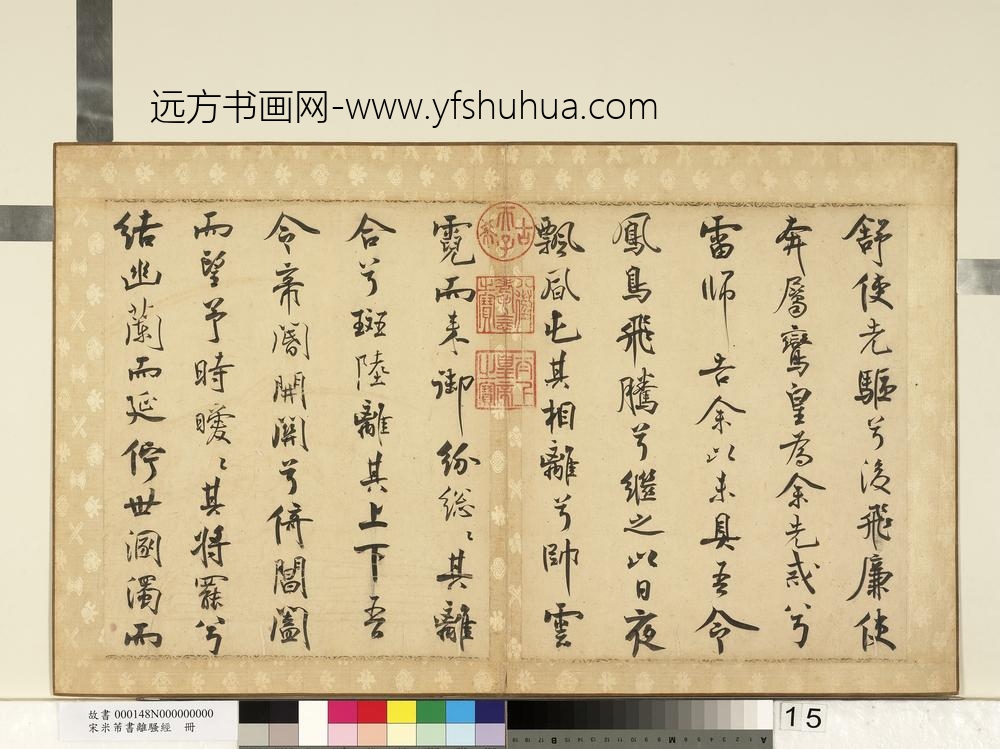 远方书画网-www.yfshuhua.com
舒使先驅兮後飛廉使
奔屬鸞皇為余先戒兮
雷師告余以未具吾令
鳳鳥飛騰兮繼之以日夜
飄風屯其相離兮帥雲
霓而來御紛総〻其離
合兮斑陸離其上下吾
令帝閽開關兮倚閶闔
而望予時曖〻其將罷兮
結幽蘭而延佇世溷濁而
古希天子
壽
故書 000148N000000000
宋米芾書離騷經 冊
15